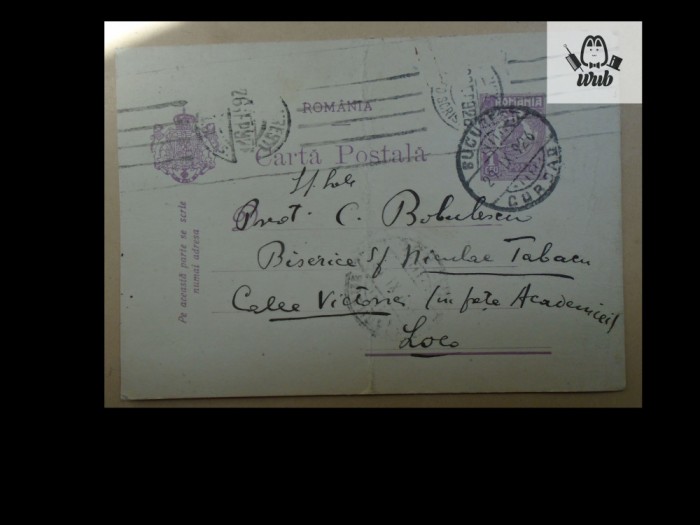 wub
ROMÂNIA
ROMANIA
Carta Postala
BUCURESTI
CURSA
Pe această parte se scrie
numai adresa
Preot C. Bobulescu
Biserica Sf Niculae Tabacu
Calea Victoriei (în fața Academiei)
Loco